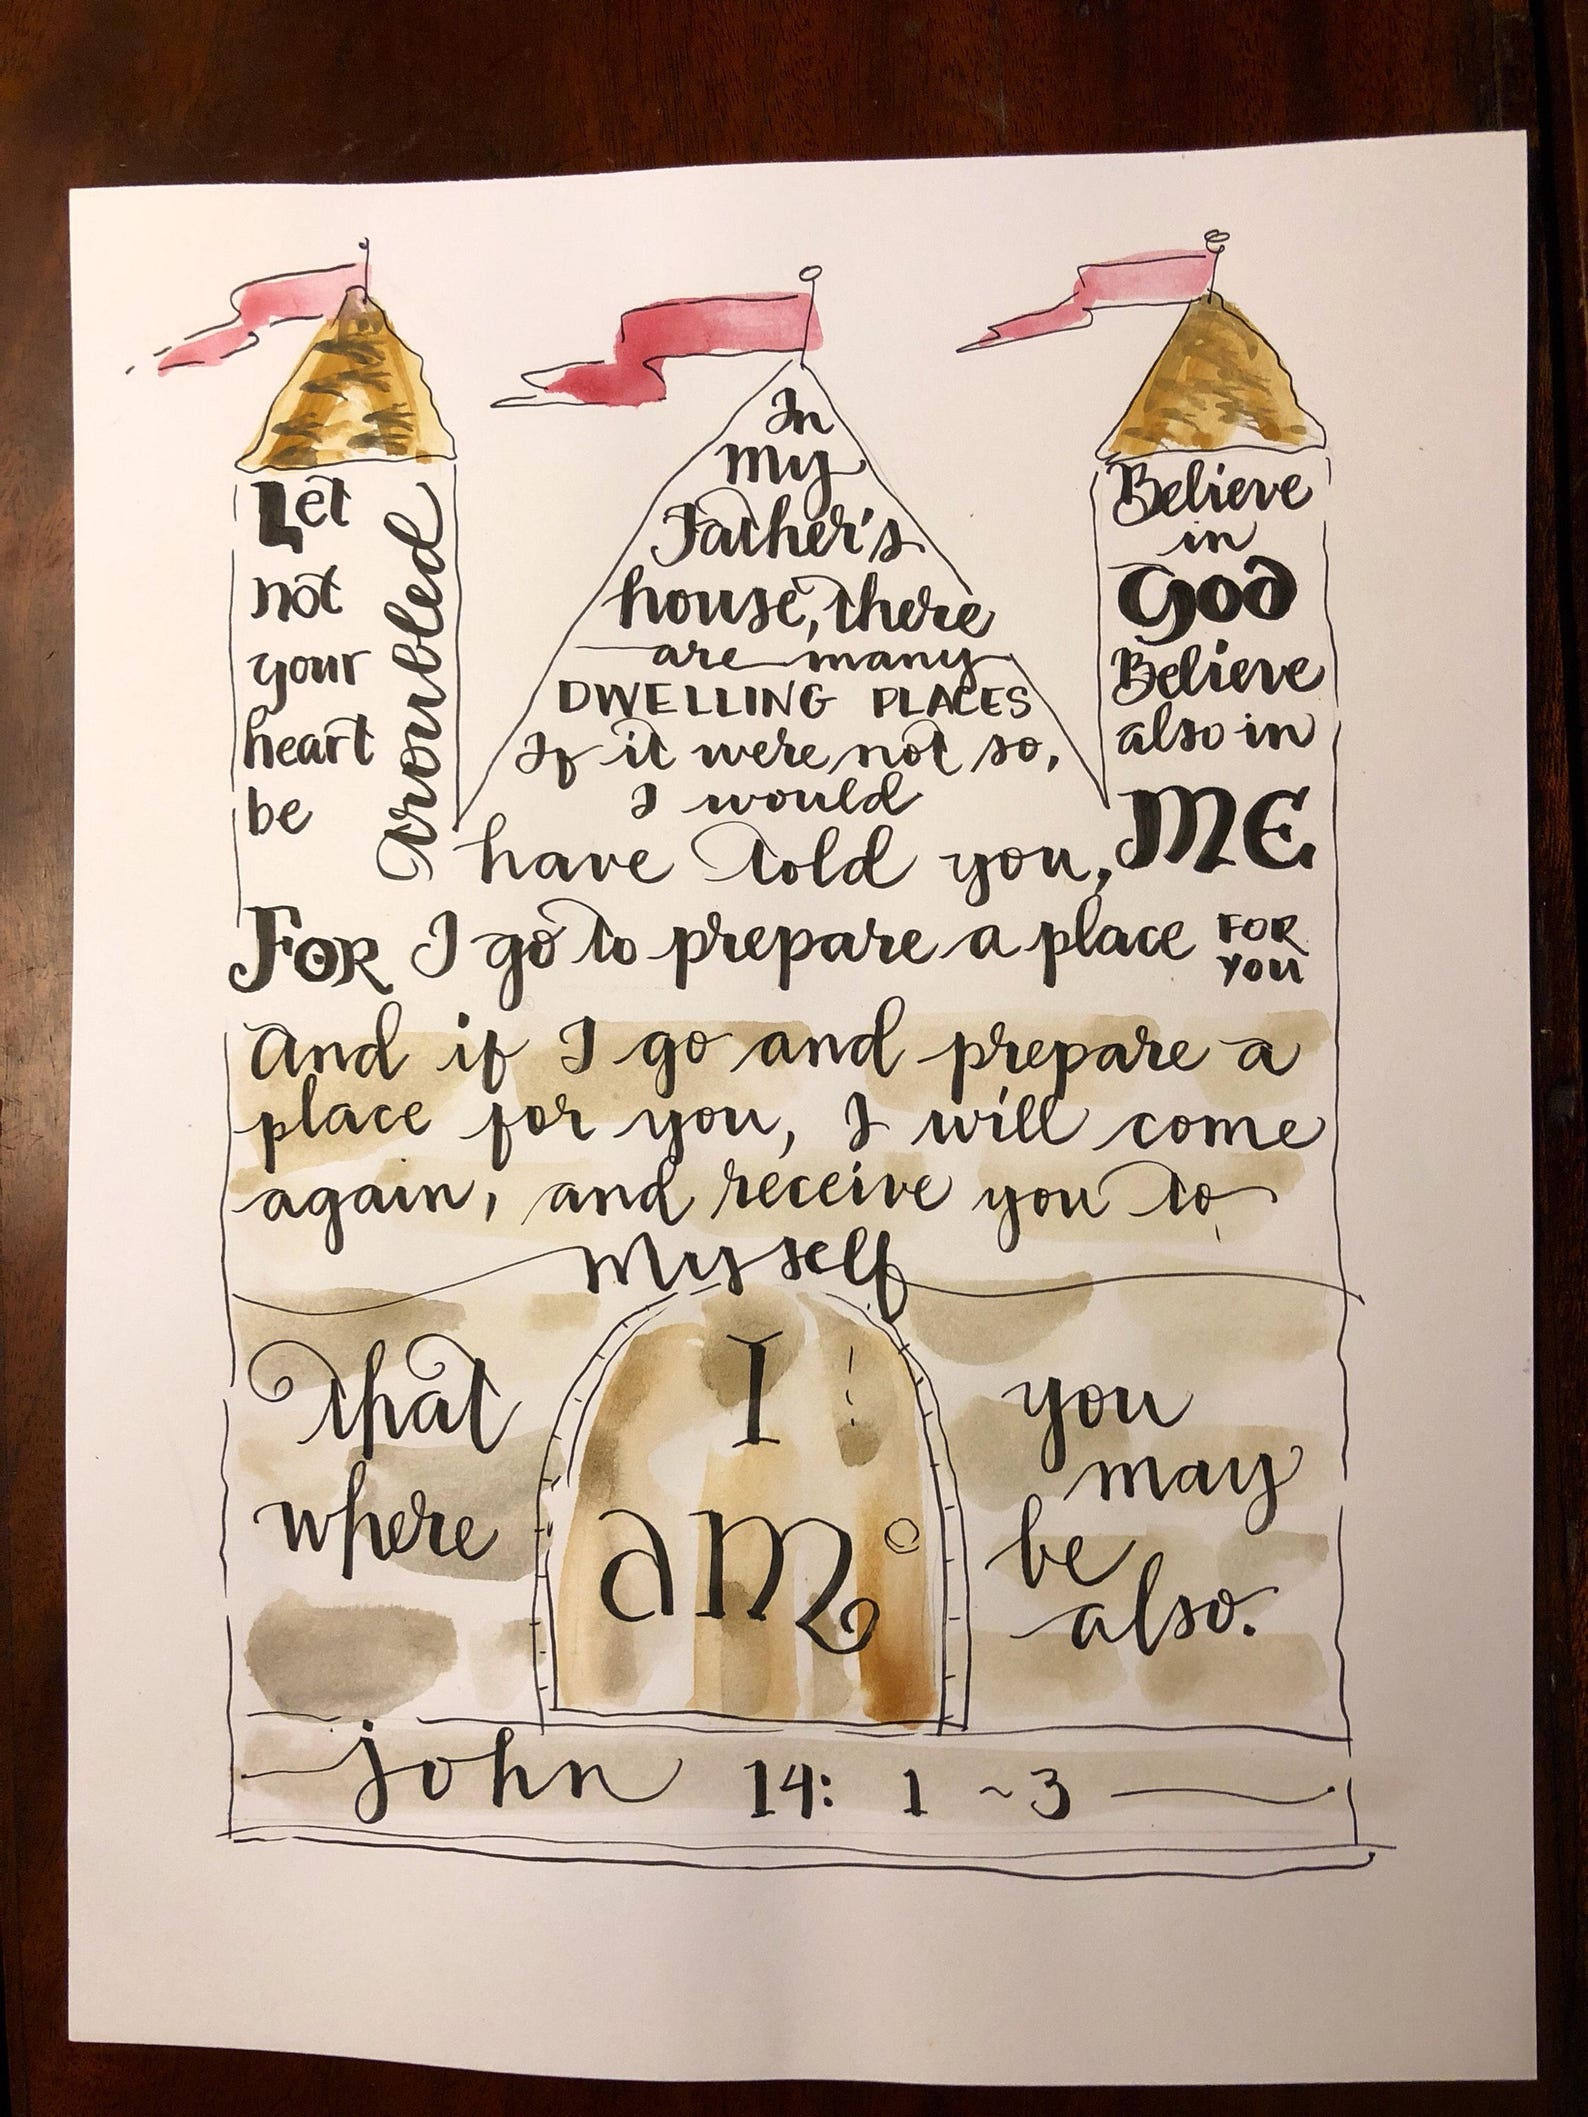 Let
not
your
heart
be
troubled
Believe
in
God
Believe
also in
ME
In
my
Father's
house, there
are many
DWELLING PLACES
If it were not so,
I would
have told you,
FOR I go to prepare a place FOR YOU
And if I go and prepare a
place for you, I will come
again, and receive you to
Myself
That
where
I
am
you
may
be
also.
john 14: 1 ~3